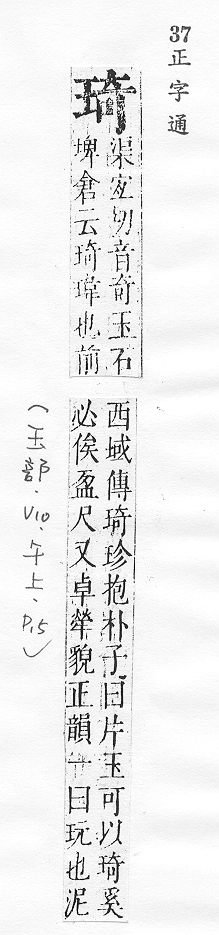 37正字通
琦
渠宜切音奇玉石
埤倉云琦瑋也前
西域傳琦珍抱朴子曰片玉可以琦奚
必俟盈尺又卓犖貌正韻一曰玩也泥
(玉部.V10.午上.P15)